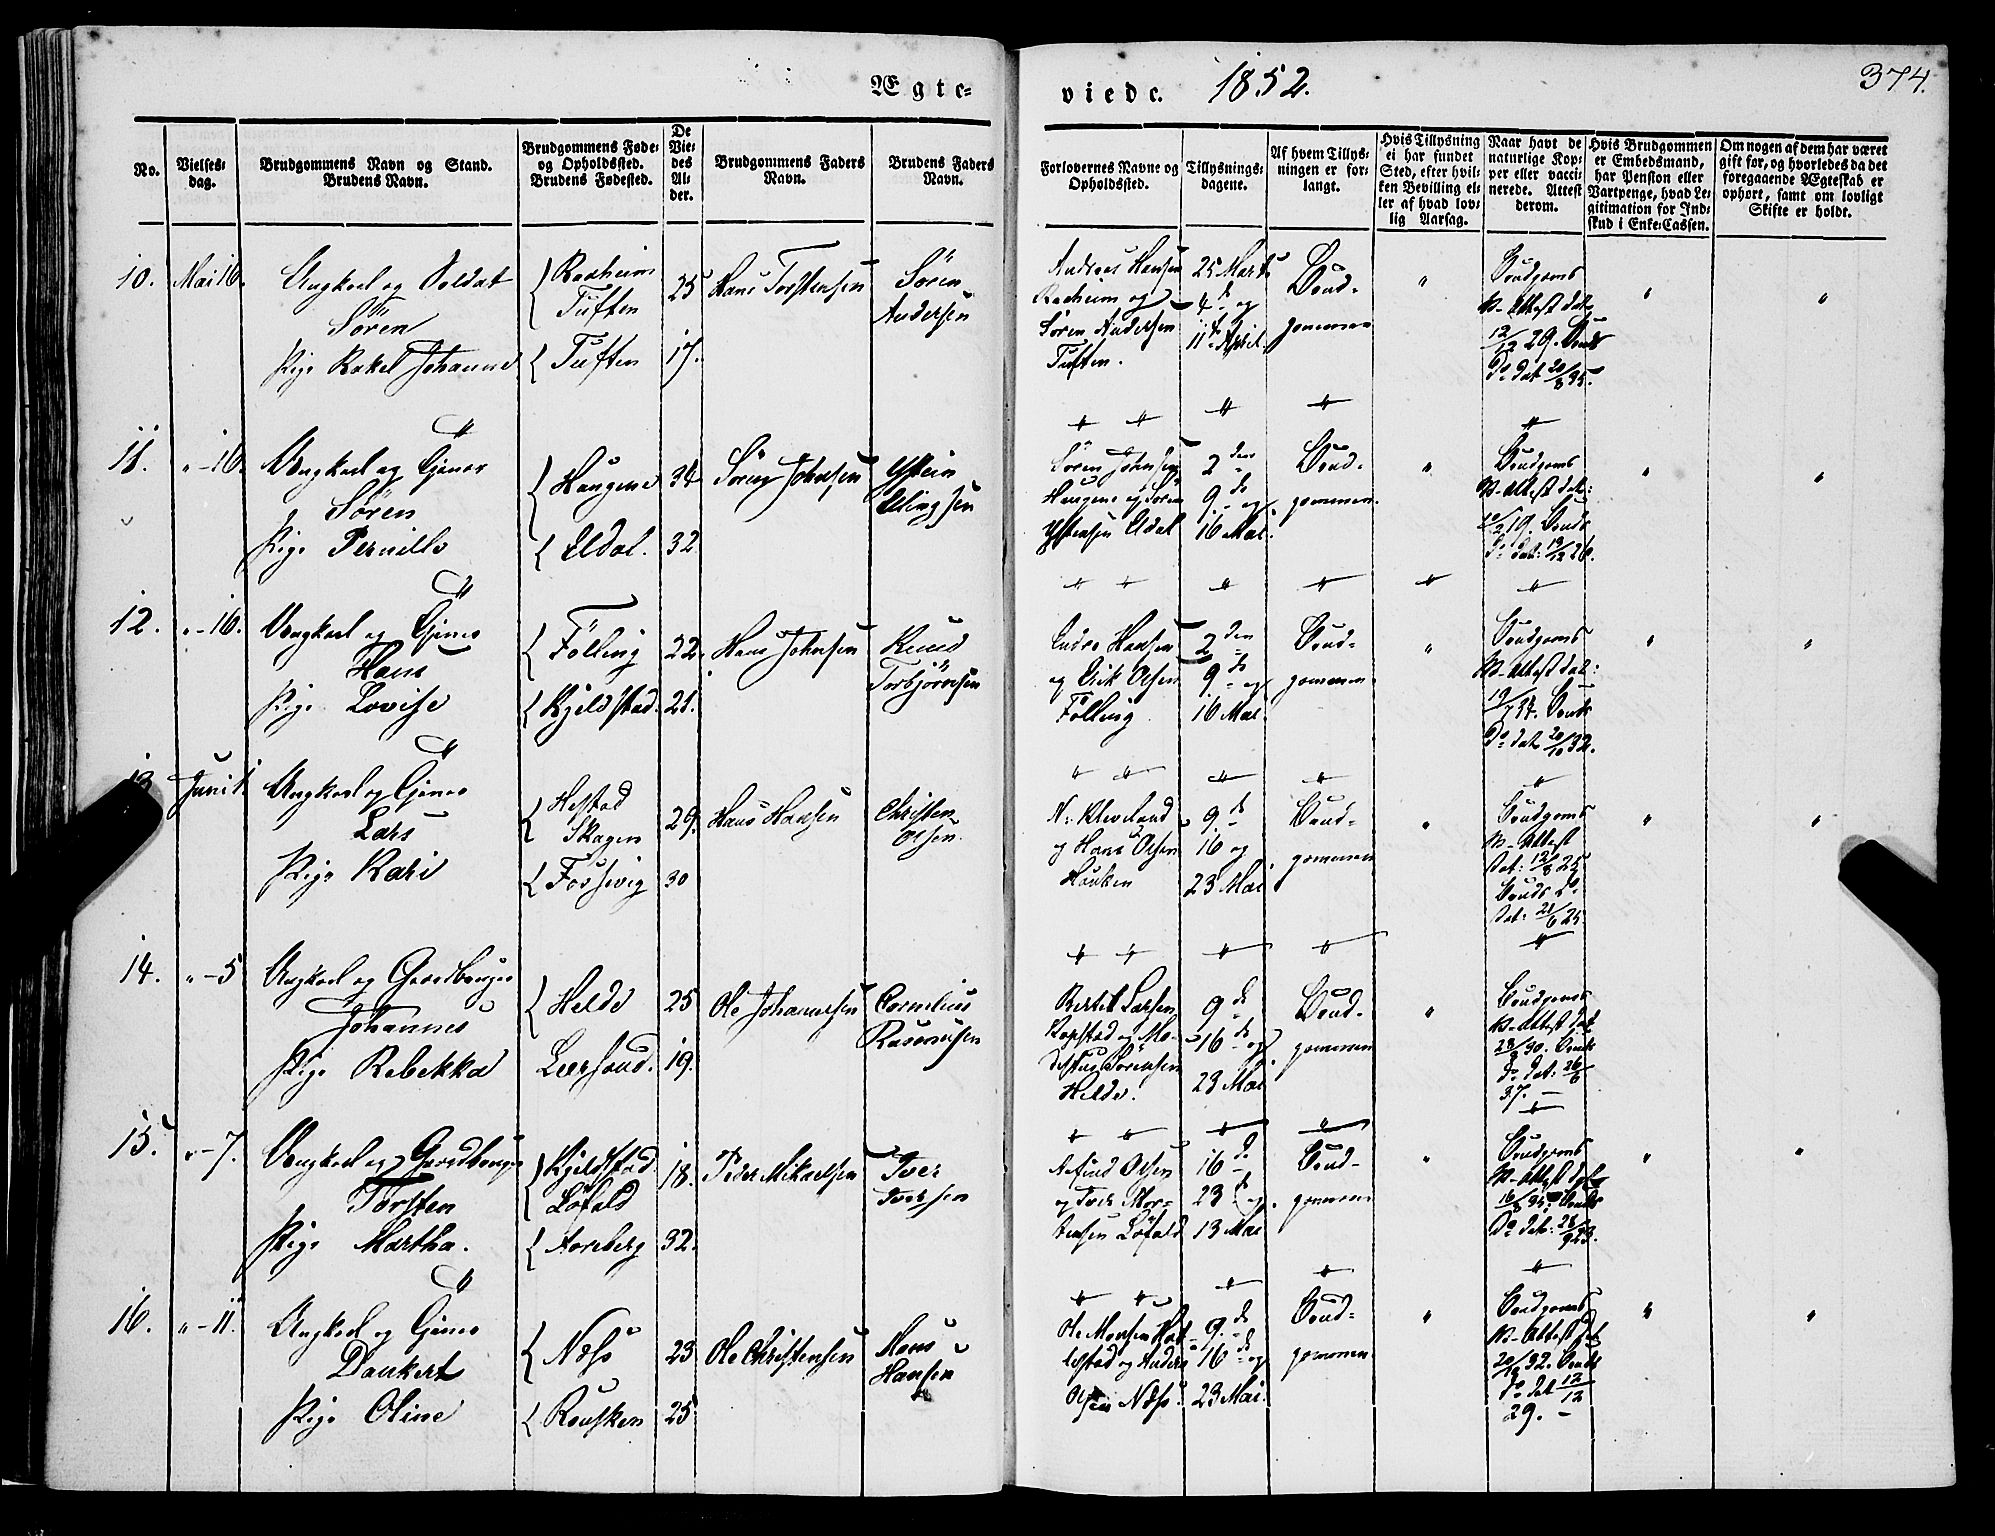 Ægte-
viede. 1852.
374.
No.
Vielses-
dag.
Brudgommens Navn og Stand.
Brudens Navn.
Brudgommens Føde-
og Opholdssted.
Brudens Fødested.
De
Vie-
des
Al-
der.
Brudgommens Faders
Navn.
Brudens Faders
Navn.
Forlovernes Navne og
Opholdssted.
Tillysnings-
dagene.
Af hvem Tillys-
ningen er for-
langt.
Hvis Tillysning
ei har fundet
Sted, efter hvil-
ken Bevilling el-
ler af hvad lov-
lig Aarsag.
Naar havt de
naturlige Kop-
per eller vacci-
nerede. Attest
derom.
Hvis Brudgommen
er Embedsmand,
har Pension eller
Vartpenge, hvad Le-
gitimation for Ind-
skud i Enke-Cassen.
Om nogen af dem har været
gift før, og hvorledes da det
foregaaende Ægteskab er
ophørt, samt om lovligt
Skifte er holdt.
10. Mai 16. Ungkarl og Soldat
Sören
Pige Rakel Johanne
Tuften
Tuften
25
17.
Hans Torstensen
Sören
Andersen
Andreas Hansen
og
Sören Andersen
Tuften.
25 Marts
4de og
11te April.
Brud-
gommen
Brudgoms
V-Attest dat
12/12 29. Bruds
Do dat 20/8 35.
11. " - 16. Ungkarl og Gjenss
Sören
Pige Pernille
Haugene
Eldal.
34
32
Sören Johnsen
Ystein
Elingsen
Sören Johnsen
Haugene og Sören
Ystensen Eldal
2den
9de og
16 Mai.
Brud-
gommen.
Brudgoms
V-Attest dat:
19. Bruds
Do dat: 19/12 26.
12. " - 16. Ungkarl og
Hans
Pige Lovise
Fölling
Kjeldstad.
22.
21.
Hans Johnsen
Knud
Torbjörnsen
Endre Hansen
og Erik Olsen
Fölling
2den
9de og
16 Mai.
Brud-
gommen
Brudgoms
V-Attest dat:
19/7 34. Bruds
Do dat 20/10 32.
13 Juni 1. Ungkarl og
Lars
Pige Kari
Hestad
Skagen
Fossevig
29.
30
Hans Hansen
Christen
Olsen.
N: Kleveland
og Hans Olsen
Hauken
9de
16 og
23 Mai
Brud-
gommen
Brudgoms
V-Attest
dat: 12/8 25
Bruds do
dat: 21/6 25.
14. " - 5 Ungkarl og Gaardbruger
Johannes
Pige Rebekka
Helde
Leersund.
25
19.
Ole Johannesen
Cornelius
Rasmusen
Bertel Larsen
og
Sörensen
Helde.
9de
16de og
23 Mai
Brud-
gommen
Brudgoms
V-Attest dat
30. Bruds
do dat: 26/6
37. -
15. " - 7. Ungkarl og Gaardbruger
Torsten
Pige Martha.
Kjeldstad
Löfald
Aareberg
18.
32.
Peder Mikaelsen
Iver
Iversen
Olsen
og Iver Mor-
tensen Löfald
16de
23de og
13 Mai
Brud-
gommen
Brudgoms
V-Attest dat
16/8 35. Bruds
Do dat:
23.
16. " - 11. Ungkarl og
Dankert
Pige Oline
Næss
Rousken
23
25
Ole Christensen
Mons
Hansen
Ole Monsen
og Anders
Olsen Næss
9de
16de og
23 Mai.
Brud-
gommen.
Brudgoms
V-Attest dat
32. Bruds
do dat 12/12
29. -